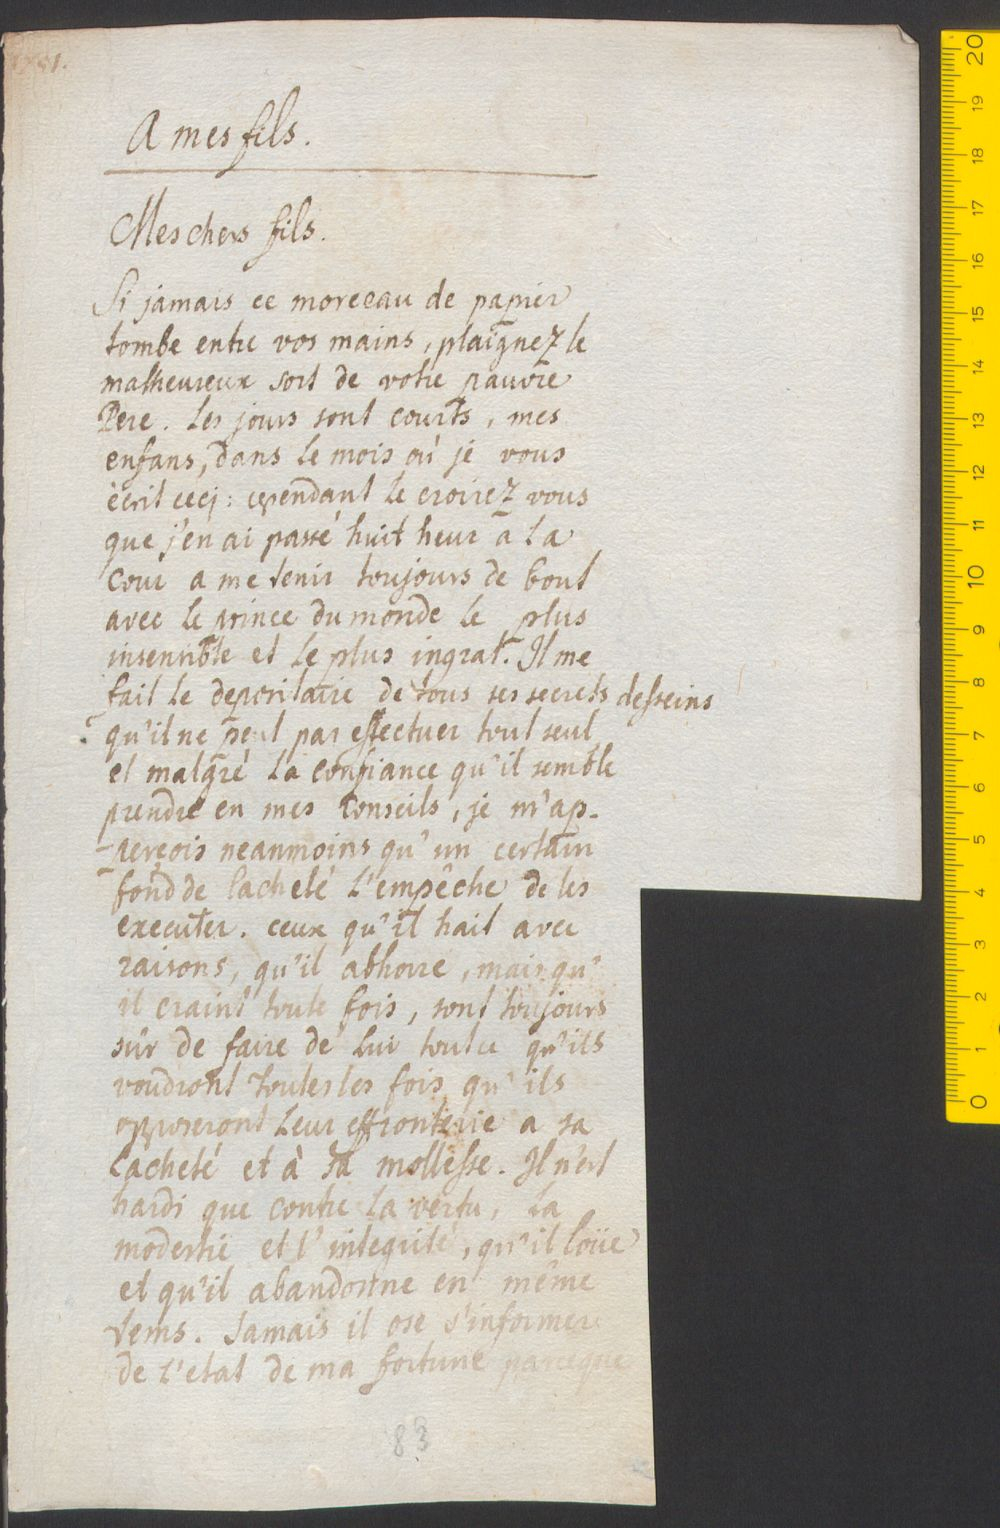 A mes fils.
Mes chers fils.
Si jamais ce morceau de papier
tombe entre vos mains, plaignez le
malheureux sort de votre pauvre
Pere. Les jours sont courts, mes
enfans, dans le mois où je vous
ècrit ceci: cependant le croirez vous
que j'en ai passé huit heur a la
Cour a me tenir toujours de bout
avec le prince du monde le plus
insensible et le plus ingrat. Il me
fait le depositaire de tous ses secrets desseins
qu'il ne peut pas effectuer tout seul
et malgré la confiance qu'il semble
prendre en mes conseils, je m'ap-
perçois neanmoins qu'un certain
fond de lacheté l'empêche de les
executer. ceux qu'il hait avec
raisons, qu'il abhorre, mais qu'
il craint toute fois, sont toujours
sûr de faire de lui tout ce qu'ils
voudront toutes les fois qu'ils
opposeront leur effronterie a sa
lacheté et à sa mollesse. Il n'est
hardi que contre la vertu, la
modestie et l'integrité, qu'il loüe
et qu'il abandonne en même
tems. Jamais il ose s'informer
de l'etat de ma fortune parceque
83
20
19
18
17
16
15
14
13
12
11
10
9
8
7
6
5
4
3
2
1
0